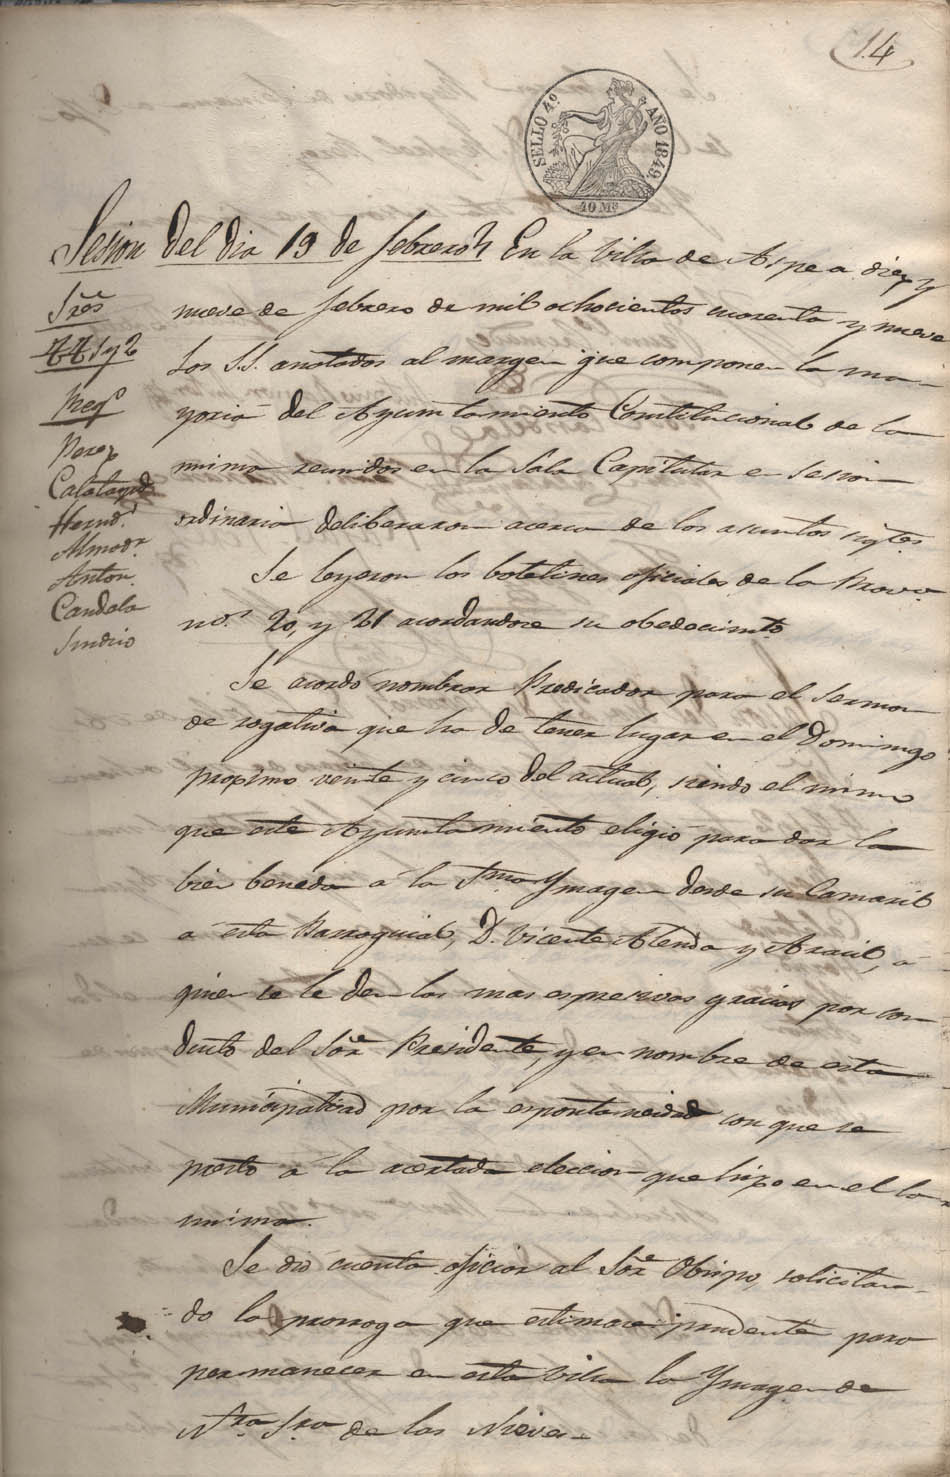 14
SELLO 4º AÑO 1849.
40 Ms
Sesion del dia 19 de febrero En la Villa de Aspe a diez y
nueve de febrero de mil ochocientos cuarenta y nueve
Los S.S. anotados al margen que componen la ma-
yoria del Ayuntamiento Constitucional de la
misma reunidos en la Sala Capitular en sesion
ordinaria deliberaron acerca de los asuntos sigtes
Sres
TT 1 y 2
Reg.s
Perez
Calatayud
Hernd.
Almodr.
Anton.
Candela
Sindico
Se leyeron los boletines oficiales de la Prova
nos. 20, y 21 acordandose su obedecimto
Se acordó nombrar Predicador para el sermon
de rogativa que ha de tener lugar en el Domingo
proximo veinte y cinco del actual, siendo el mismo
que este Ayuntamiento eligió para dar la
bien benida á la Sma Ymagen desde su Camaril
a esta Parroquial, D. Vicente Alenda y Aracil, á
quien se le den las mas espresivas gracias por con-
ducto del Sor. Presidente, y en nombre de esta
Municipalidad por la espontaneidad con que se
prestó á la acertada eleccion que hizo en el la
misma.
Se dió cuenta oficiar al Sor. Obispo, solicitan-
do la prorroga que estimare prudente para
permanecer en esta Villa la Ymagen de
Ntra Sra de las Nieves